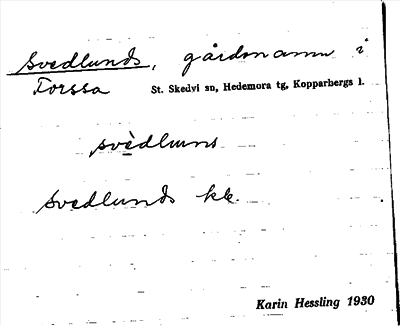 Svedlunds, gårdsnamn i
Forssa St. Skedvi sn, Hedemora tg, Kopparbergs l.
svèdluns
Svedlunds kb.
Karin Hessling 1930